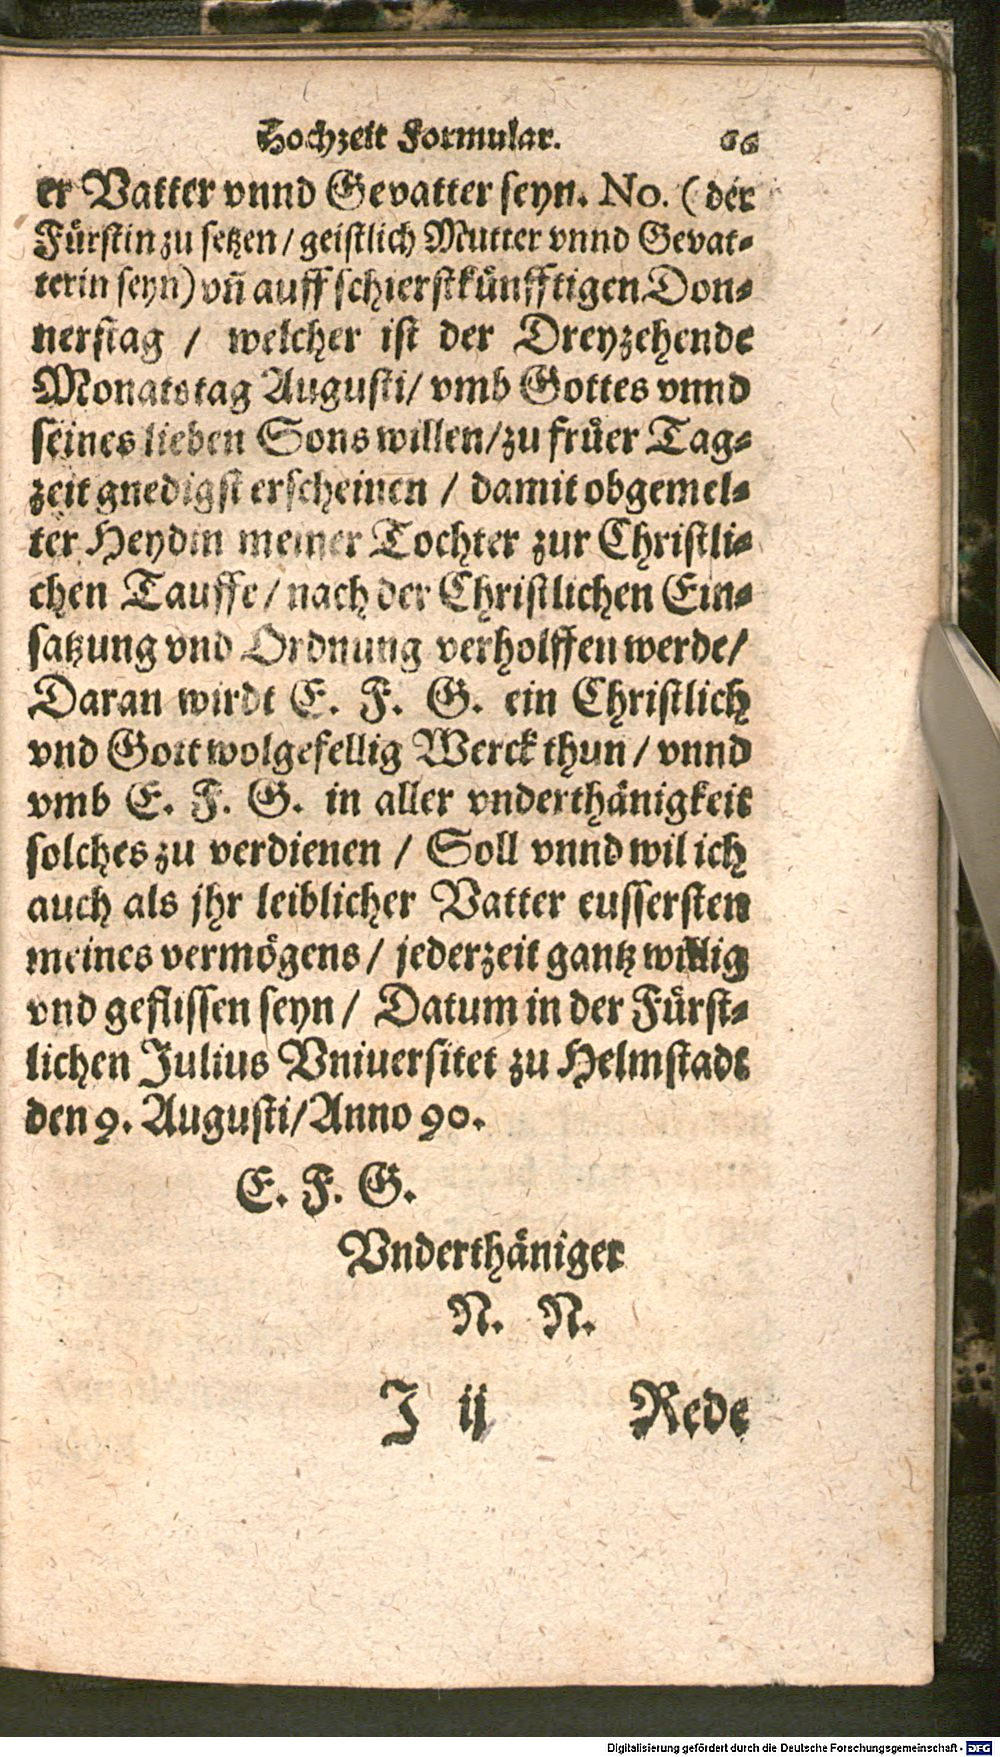 Hochzeit Formular. 66
er Vatter vnnd Gevatter seyn. No. (der
Fürstin zu setzen / geistlich Mutter vnnd Gevat-
terin seyn) vñ auff schierstkünfftigen Don-
nerstag / welcher ist der Dreyzehende
Monatstag Augusti / vmb Gottes vnnd
seines lieben Sons willen / zu früer Tag-
zeit gnedigst erscheinen / damit obgemel-
ter Heydin meiner Tochter zur Christli-
chen Tauffe / nach der Christlichen Ein-
satzung vnd Ordnung verholffen werde /
Daran wirdt E. F. G. ein Christlich
vnd Gott wolgefellig Werck thun / vnnd
vmb E. F. G. in aller vnderthänigkeit
solches zu verdienen / Soll vnnd wil ich
auch als jhr leiblicher Vatter eussersten
meines vermögens / jederzeit gantz willig
vnd geflissen seyn / Datum in der Fürst-
lichen Julius Vniuersitet zu Helmstadt
den 9. Augusti / Anno 90.
E. F. G.
Vnderthäniger
N. N.
J ij Rede
Digitalisierung gefördert durch die Deutsche Forschungsgemeinschaft - DFG